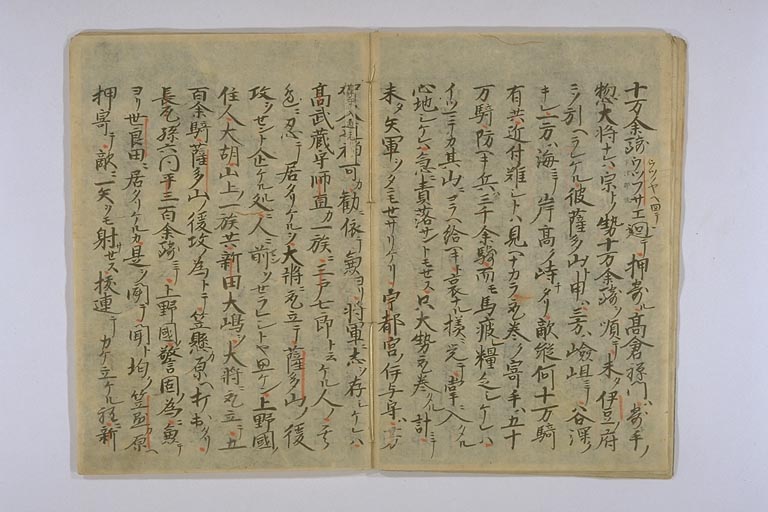 十万余騎ウツフサエ廻テ押寄ル高倉禅門ハ寄手ノ
惣大将ナレハ宗トノ勢十万余騎ヲ順テ未タ伊豆ノ府
ニソ引ヘラレケル彼薩多山ト申ハ三方ハ嶮岨ニテ谷深ク
キレ一方ハ海ニテ岸高ク峙タリ敵縦何十万騎
有共近付難シトハ見ヘナカラ取巻ク寄手ハ五十
万騎防ク兵ハ三千余騎而モ馬疲レ糧乏シケレハ
イツマテカ其山ニコラヘ給フヘキト哀ナル様ニ覚テ掌ニ入タル
心地シケレハ急ニ責落サントモセス只大勢取巻タル計ニテ
未タ矢軍ヲタニモセサリケリ宇都宮ハ
禅可カ勧ニ依テ兼ヨリ将軍ニ志ヲ存シケレハ
高武蔵守師直カ一族ニ三戸七郎ト云ケル人ノ其
忍テ居タリケルヲ大将ニ取立テ薩多山ノ後
攻ヲセント企ケル処ニ人ニ前ヲセラレシトヤ思ケン上野國ノ
住人大胡山上ノ一族共新田大嶋ヲ大将ニ取立テ五
百余騎薩多山ノ後攻ノ為トテ笠懸ノ原ヘ打出タリ
長尾孫六同平三三百余騎ニテ上野國警固ノ為ニ兼テ
ヨリ世良田ニ居タリケルカ是ヲ聞テ聞ト均ク笠懸ノ原ヘ
押寄テ敵ニ一矢ヲモ射サセス抜連テカケ立ケル程ニ新